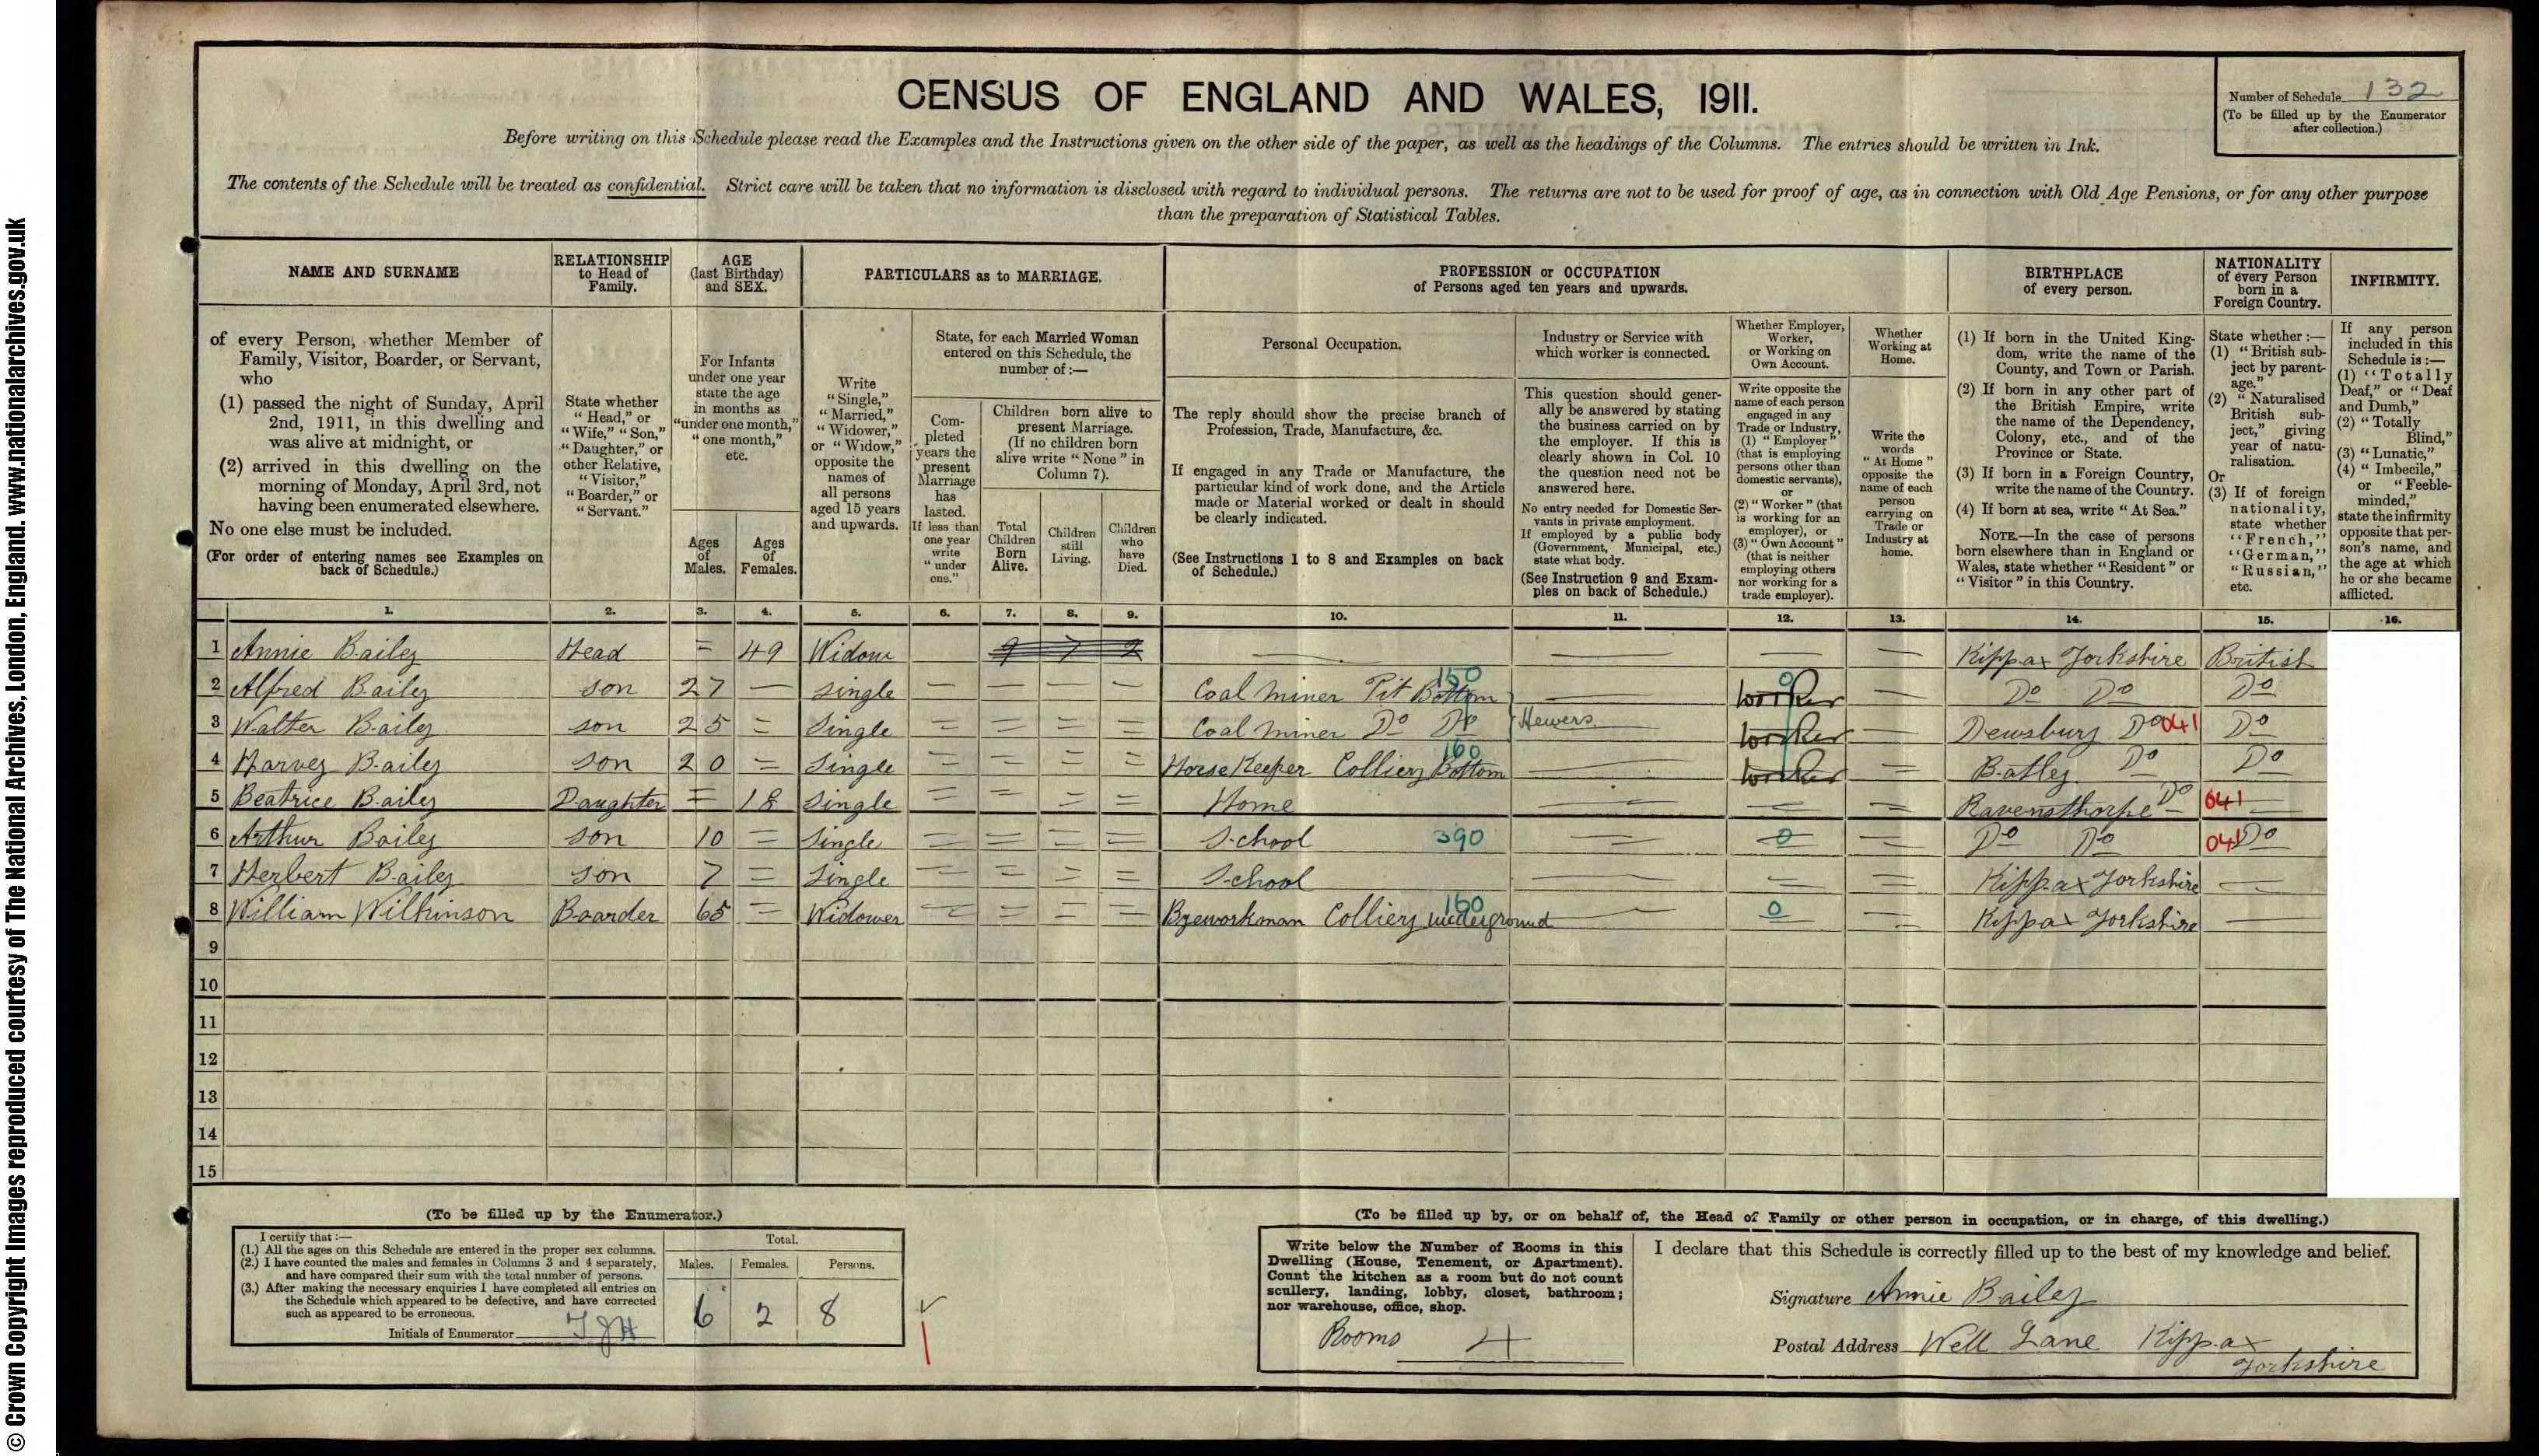 CENSUS OF ENGLAND AND WALES, 1911.
Number of Schedule 132
(To be filled up by the Enumerator
after collection.)
Before writing on this Schedule please read the Examples and the Instructions given on the other side of the paper, as well as the headings of the Columns. The entries should be written in Ink.
The contents of the Schedule will be treated as confidential. Strict care will be taken that no information is disclosed with regard to individual persons. The returns are not to be used for proof of age, as in connection with Old Age Pensions, or for any other purpose
than the preparation of Statistical Tables.
NAME AND SURNAME
of every Person, whether Member of
Family, Visitor, Boarder, or Servant,
who
(1) passed the night of Sunday, April
2nd, 1911, in this dwelling and
was alive at midnight, or
(2) arrived in this dwelling on the
morning of Monday, April 3rd, not
having been enumerated elsewhere.
No one else must be included.
(For order of entering names see Examples on
back of Schedule.)
RELATIONSHIP
to Head of
Family.
State whether
"Head," or
"Wife," "Son,"
"Daughter," or
other Relative,
"Visitor,"
"Boarder," or
"Servant."
AGE
(last Birthday)
and SEX.
For Infants
under one year
state the age
in months as
"under one month,"
"one month,"
etc.
Ages
of
Males.
Ages
of
Females.
PARTICULARS as to MARRIAGE.
Write
"Single,"
"Married,"
"Widower,"
or "Widow,"
opposite the
names of
all persons
aged 15 years
and upwards.
State, for each Married Woman
entered on this Schedule, the
number of:—
Com-
pleted
years the
present
Marriage
has
lasted.
If less than
one year
write
"under
one."
Children born alive to
present Marriage.
(If no children born
alive write "None" in
Column 7).
Total
Children
Born
Alive.
Children
still
Living.
Children
who
have
Died.
PROFESSION or OCCUPATION
of Persons aged ten years and upwards.
Personal Occupation.
The reply should show the precise branch of
Profession, Trade, Manufacture, &c.
If engaged in any Trade or Manufacture, the
particular kind of work done, and the Article
made or Material worked or dealt in should
be clearly indicated.
(See Instructions 1 to 8 and Examples on back
of Schedule.)
Industry or Service with
which worker is connected.
This question should gener-
ally be answered by stating
the business carried on by
the employer. If this is
clearly shown in Col. 10
the question need not be
answered here.
No entry needed for Domestic Ser-
vants in private employment.
If employed by a public body
(Government, Municipal, etc.)
state what body.
(See Instruction 9 and Exam-
ples on back of Schedule.)
Whether Employer,
Worker,
or Working on
Own Account.
Write opposite the
name of each person
engaged in any
Trade or Industry,
(1) "Employer"
(that is employing
persons other than
domestic servants),
or
(2) "Worker" (that
is working for an
employer), or
(3) "Own Account"
(that is neither
employing others
nor working for a
trade employer).
Whether
Working at
Home.
Write the
words
"At Home"
opposite the
name of each
person
carrying on
Trade or
Industry at
home.
BIRTHPLACE
of every person.
(1) If born in the United King-
dom, write the name of the
County, and Town or Parish.
(2) If born in any other part of
the British Empire, write
the name of the Dependency,
Colony, etc., and of the
Province or State.
(3) If born in a Foreign Country,
write the name of the Country.
(4) If born at sea, write "At Sea."
NOTE.—In the case of persons
born elsewhere than in England or
Wales, state whether "Resident" or
"Visitor" in this Country.
NATIONALITY
of every Person
born in a
Foreign Country.
State whether:—
(1) "British sub-
ject by parent-
age."
(2) "Naturalised
British sub-
ject," giving
year of natu-
ralisation.
Or
(3) If of foreign
nationality,
state whether
"French,"
"German,"
"Russian,"
etc.
INFIRMITY.
If any person
included in this
Schedule is:—
(1) "Totally
Deaf," or "Deaf
and Dumb,"
(2) "Totally
Blind,"
(3) "Lunatic,"
(4) "Imbecile,"
or "Feeble-
minded,"
state the infirmity
opposite that per-
son's name, and
the age at which
he or she became
afflicted.
1. 2. 3. 4. 5. 6. 7. 8. 9. 10. 11. 12. 13. 14. 15. 16.
1 Annie Bailey Head = 49 Widow 9 7 2 — — — — Kippax Yorkshire British
2 Alfred Bailey son 27 — single — — — — Coal miner Pit Bottom 160 — worker 0 — Do Do Do
3 Walter Bailey son 25 = Single = = = = Coal miner Do Do Hewers worker — Dewsbury Do 041 Do
4 Harvey Bailey son 20 = Single = = = = Horse Keeper Colliery Bottom 160 — worker = Batley Do Do
5 Beatrice Bailey Daughter = 18 Single = = = = Home = = = Ravensthorpe Do 041 —
6 Arthur Bailey son 10 = Single = = = = School 390 = 0 = Do Do 041 Do
7 Herbert Bailey son 7 = Single = = = = School = = = Kippax Yorkshire —
8 William Wilkinson Boarder 65 = Widower = = = = Byeworkman Colliery underground 160 — 0 = Kippax Yorkshire —
9
10
11
12
13
14
15
(To be filled up by the Enumerator.)
I certify that:—
(1.) All the ages on this Schedule are entered in the proper sex columns.
(2.) I have counted the males and females in Columns 3 and 4 separately,
and have compared their sum with the total number of persons.
(3.) After making the necessary enquiries I have completed all entries on
the Schedule which appeared to be defective, and have corrected
such as appeared to be erroneous.
Initials of Enumerator
Total.
Males. Females. Persons.
6 2 8
(To be filled up by, or on behalf of, the Head of Family or other person in occupation, or in charge, of this dwelling.)
Write below the Number of Rooms in this
Dwelling (House, Tenement, or Apartment).
Count the kitchen as a room but do not count
scullery, landing, lobby, closet, bathroom;
nor warehouse, office, shop.
Rooms 4
I declare that this Schedule is correctly filled up to the best of my knowledge and belief.
Signature Annie Bailey
Postal Address Well Lane Kippax
Yorkshire
© Crown Copyright Images reproduced courtesy of The National Archives, London, England. www.nationalarchives.gov.uk